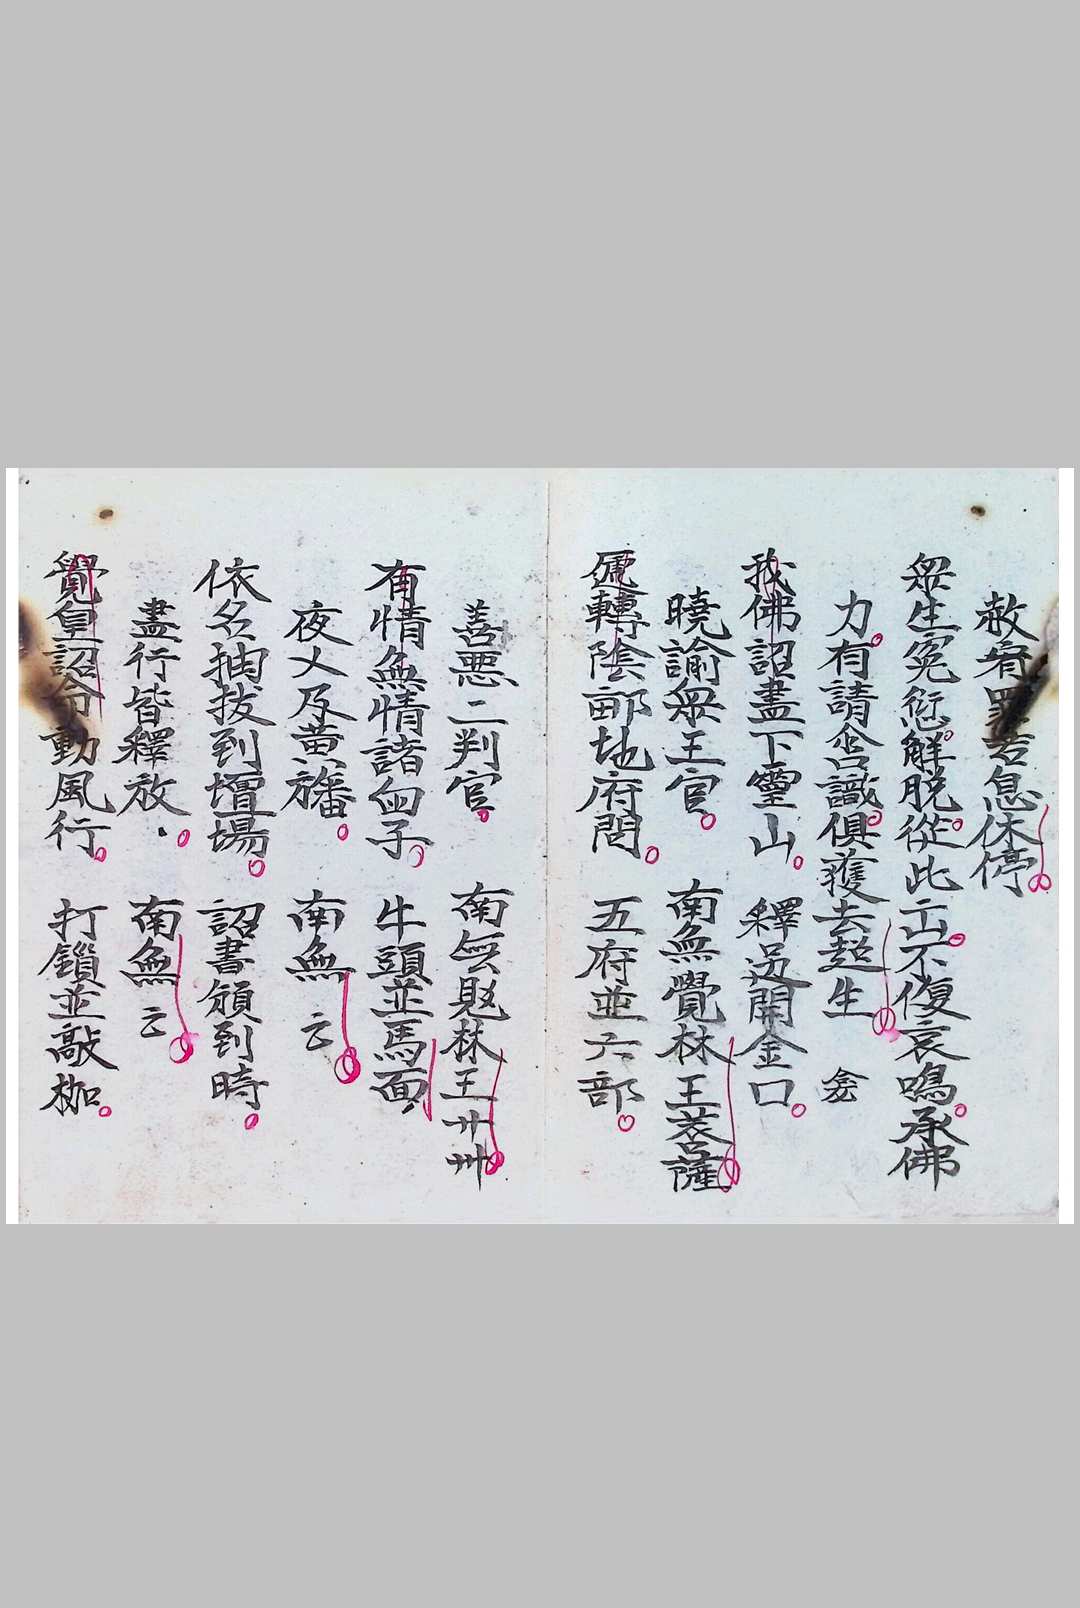 赦宥罪苦息休停
眾生冤愆解脫從此亡不復哀鳴承佛
力有請含識俱獲去超生 僉
我佛詔盡下靈山 釋迦開金口
曉諭眾王官 南無覺林王菩薩
遞轉陰酆地府間 五府並六部
善惡二判官 南無覺林王廾卅
有情無情諸血子 牛頭並馬面
夜乂及黃旛 南無 云
依名抽拔到壇場 詔書頒到時
盡行皆釋放 南無 云
覺皇詔令動風行 打鎖並敲枷